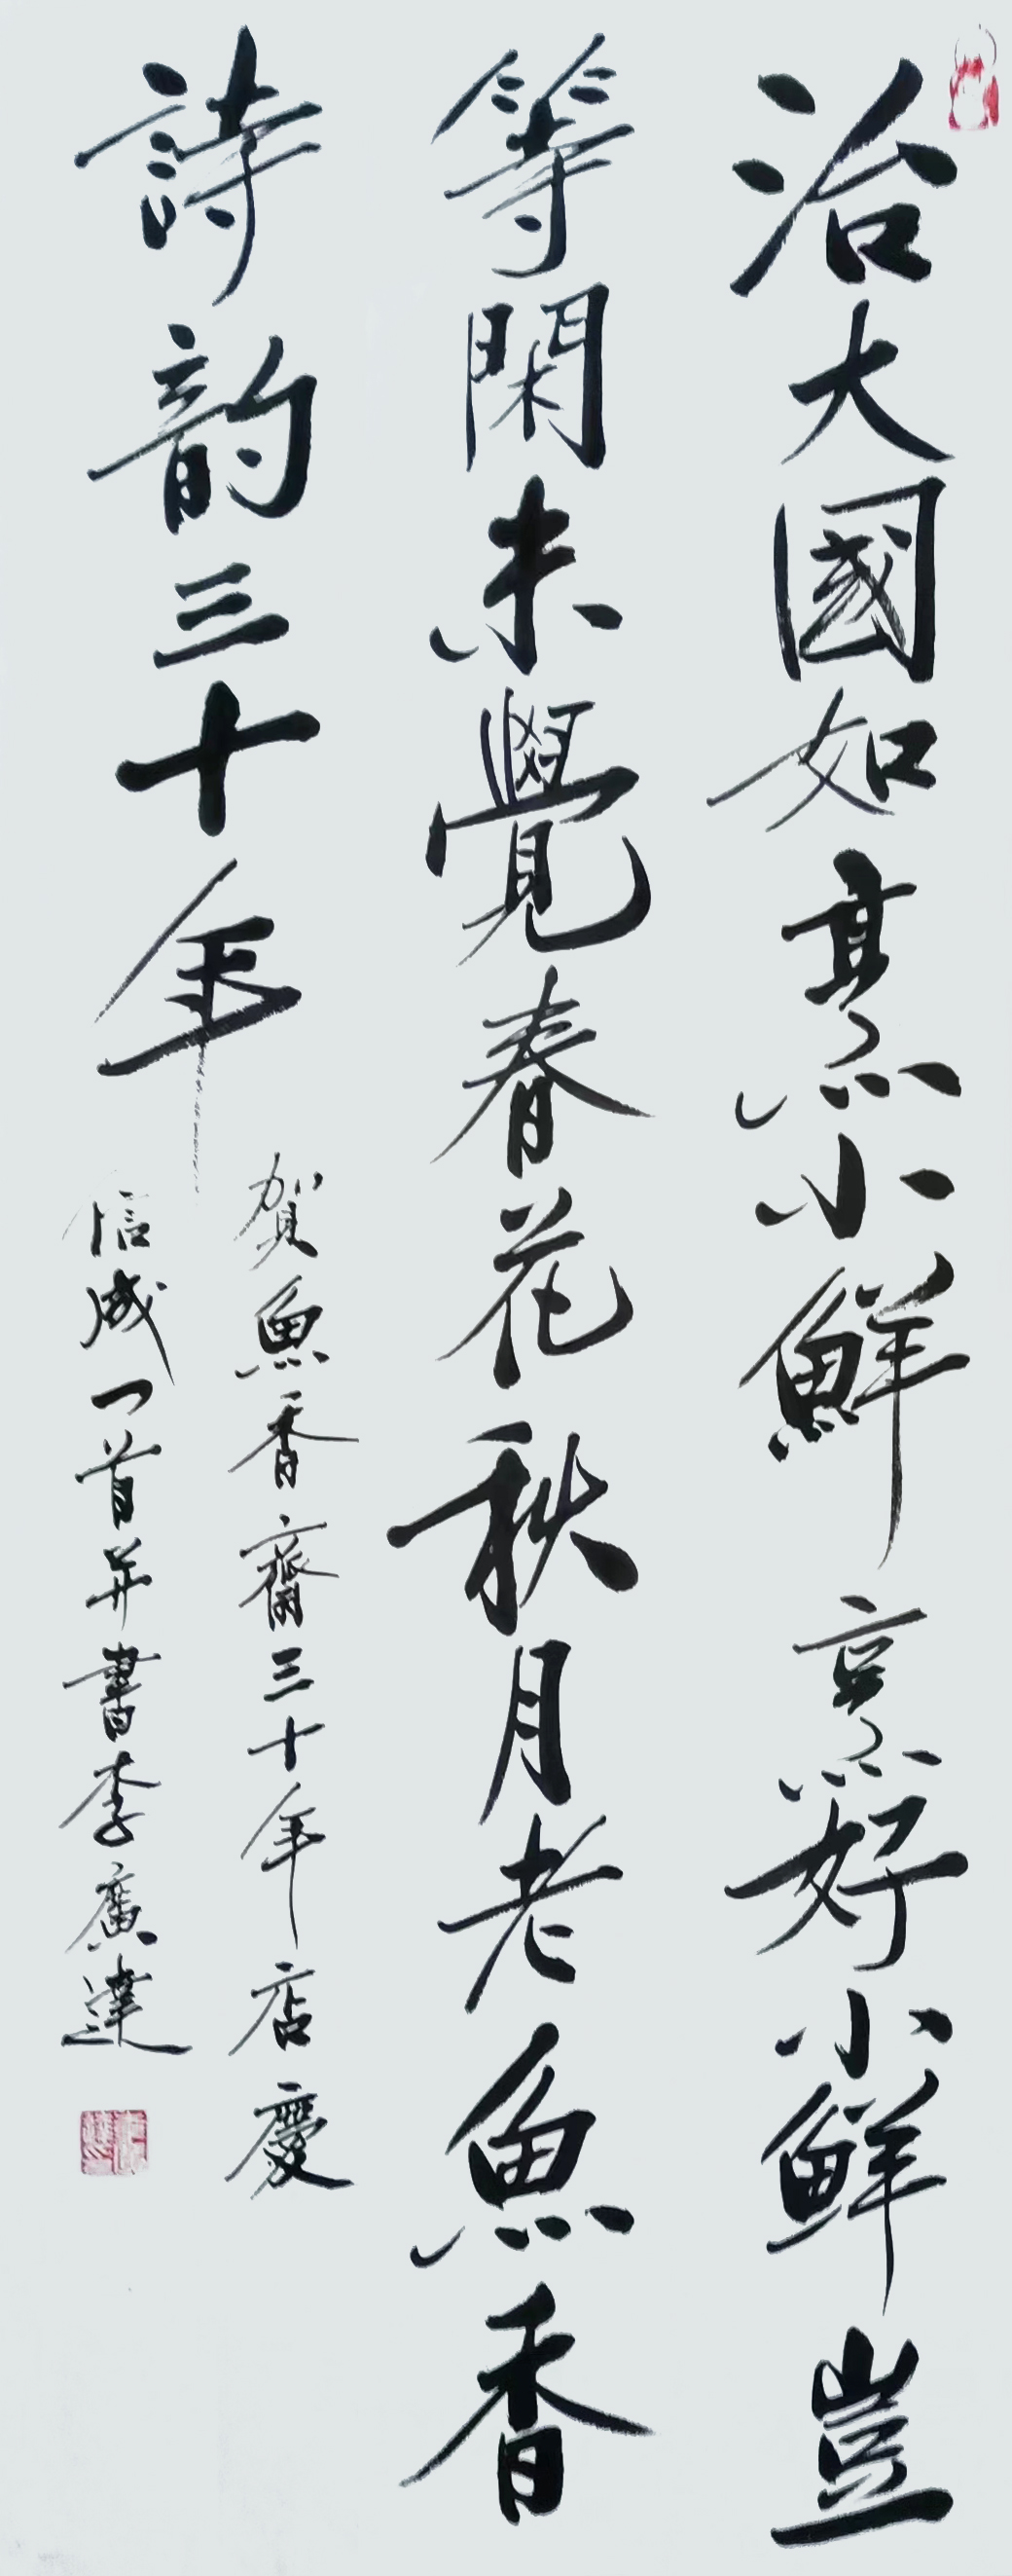 治大國如烹小鮮烹好小鮮豈
等閑未覺春花秋月老魚香
詩韵三十年
賀魚香齋三十年店慶
信成一首并書李廣達